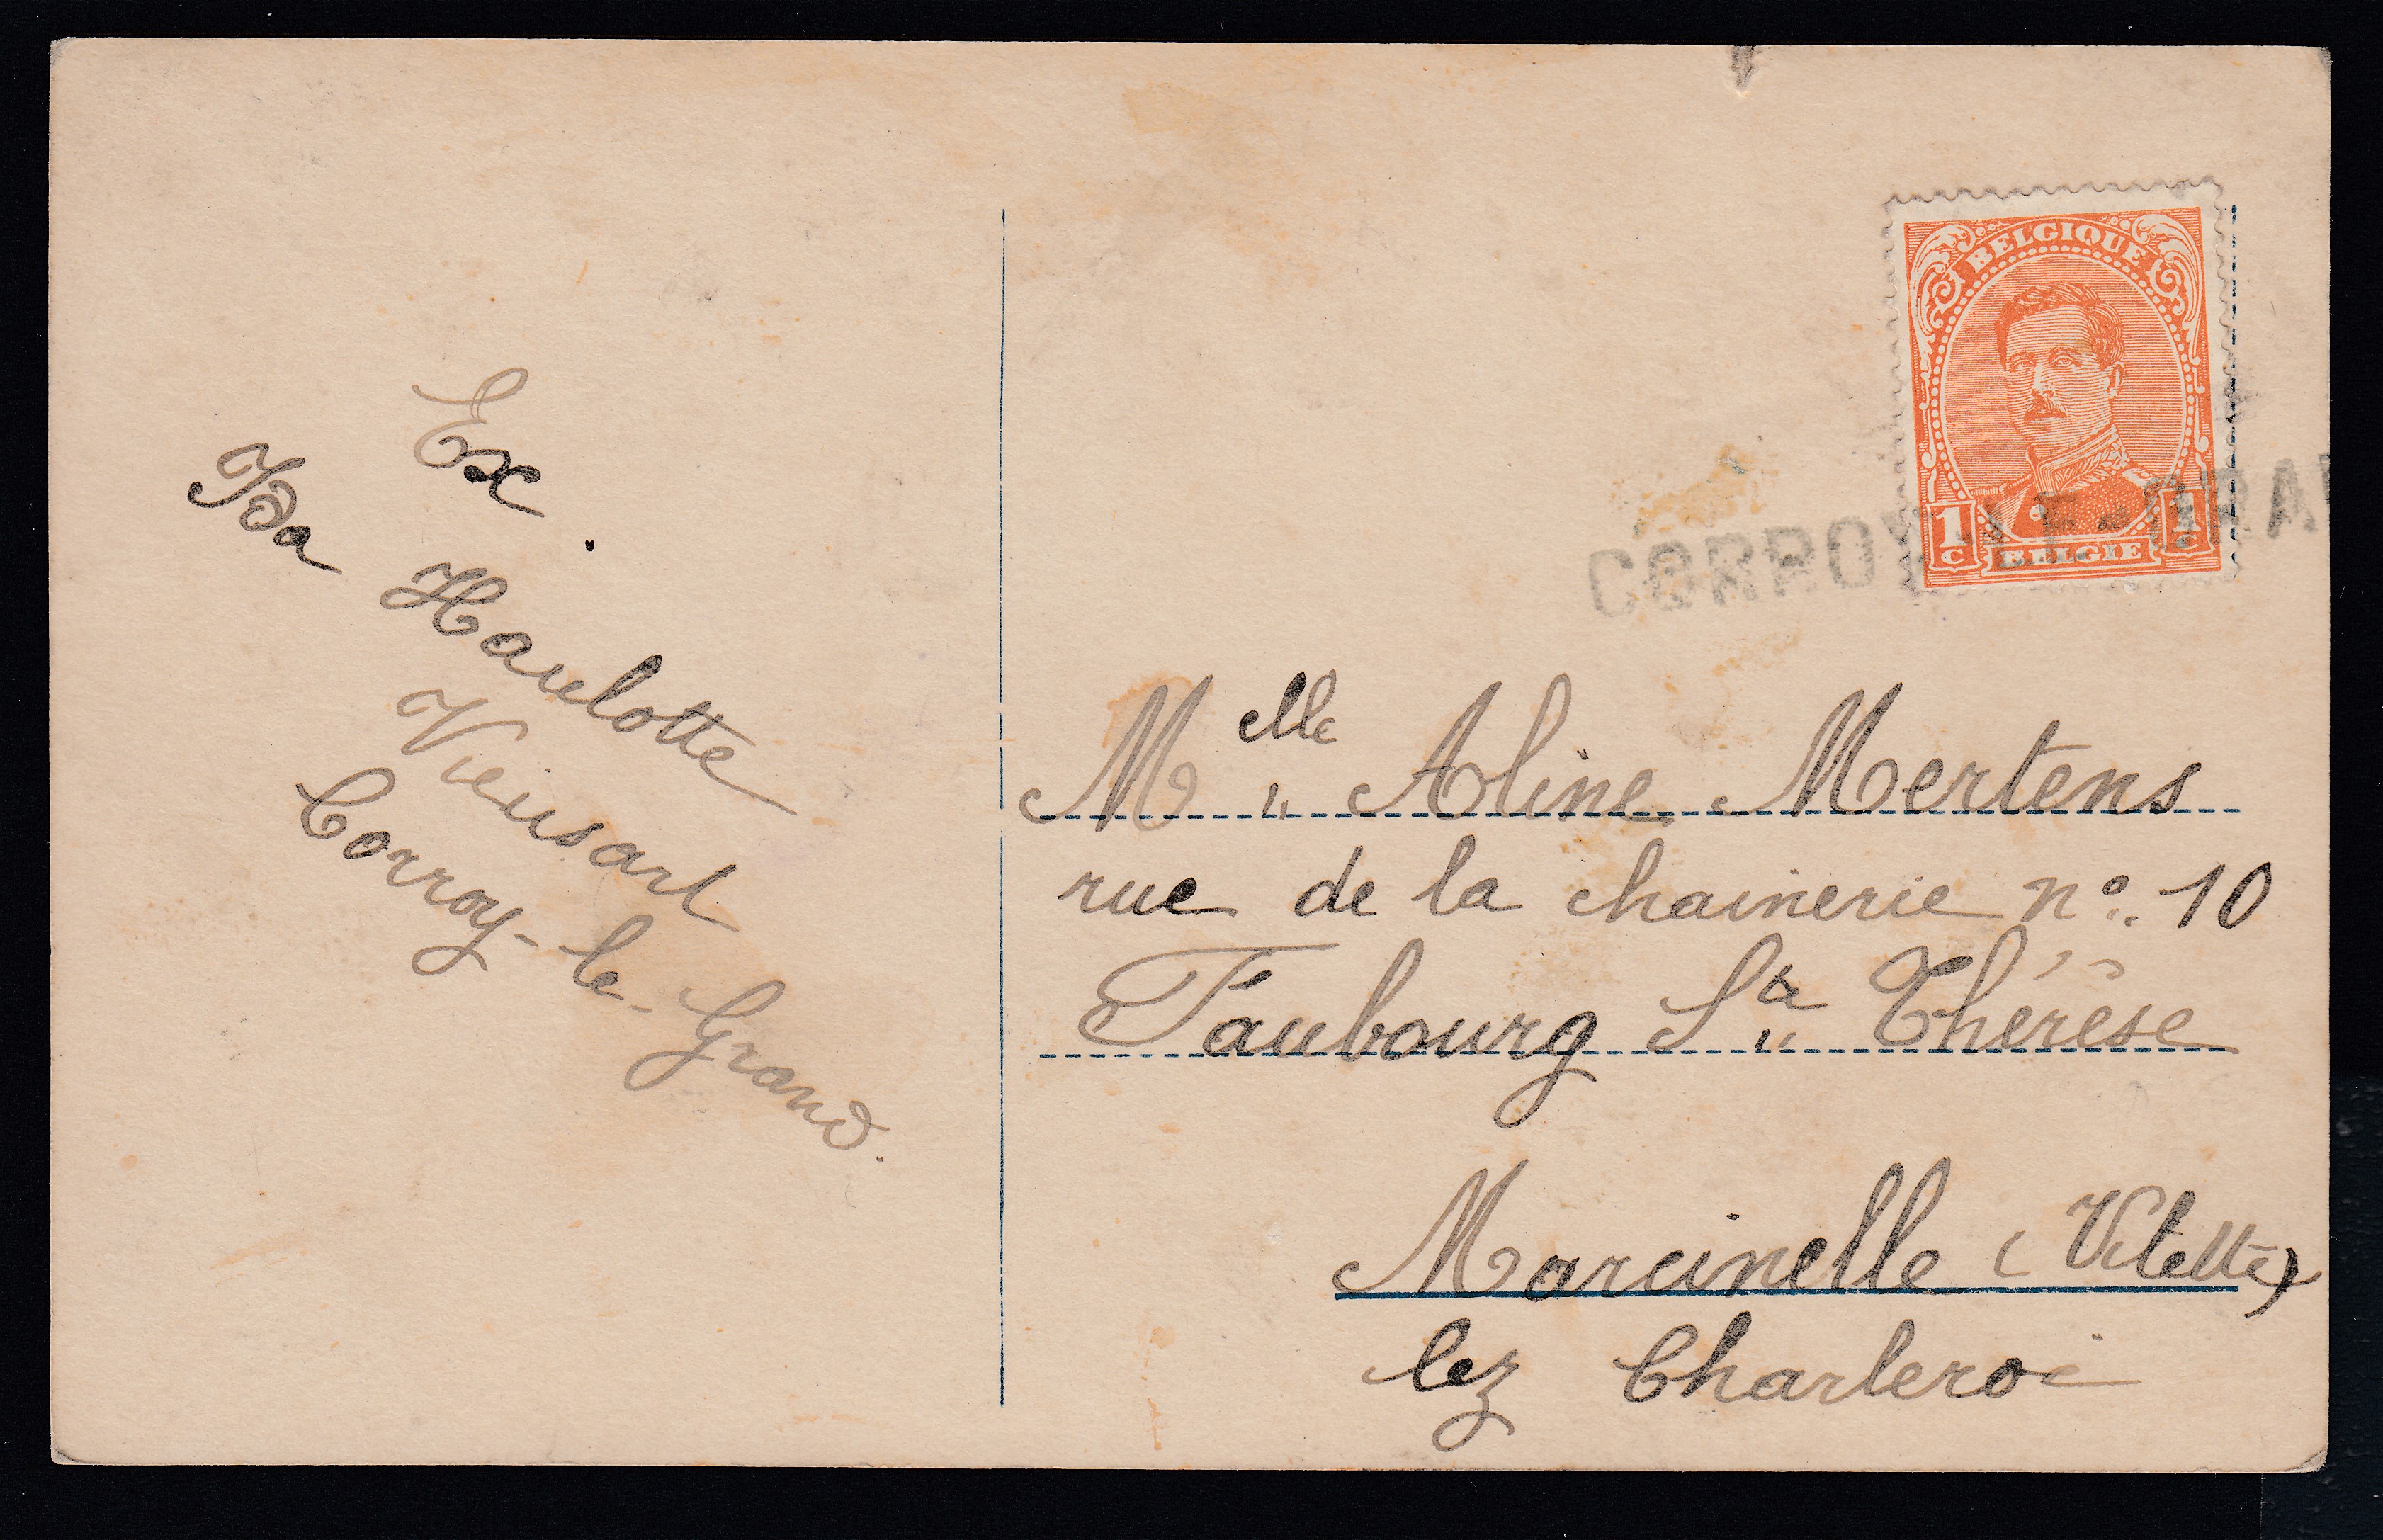 Ex
Ida Haulotte
Vieusart
Corroy-le-Grand.
BELGIQUE
1c 1c
BELGIE
CORROY-LE-GRA
Melle Aline Mertens
rue de la chainerie n° 10
Faubourg Ste Thérèse
Marcinelle (Vilette)
lez Charleroi